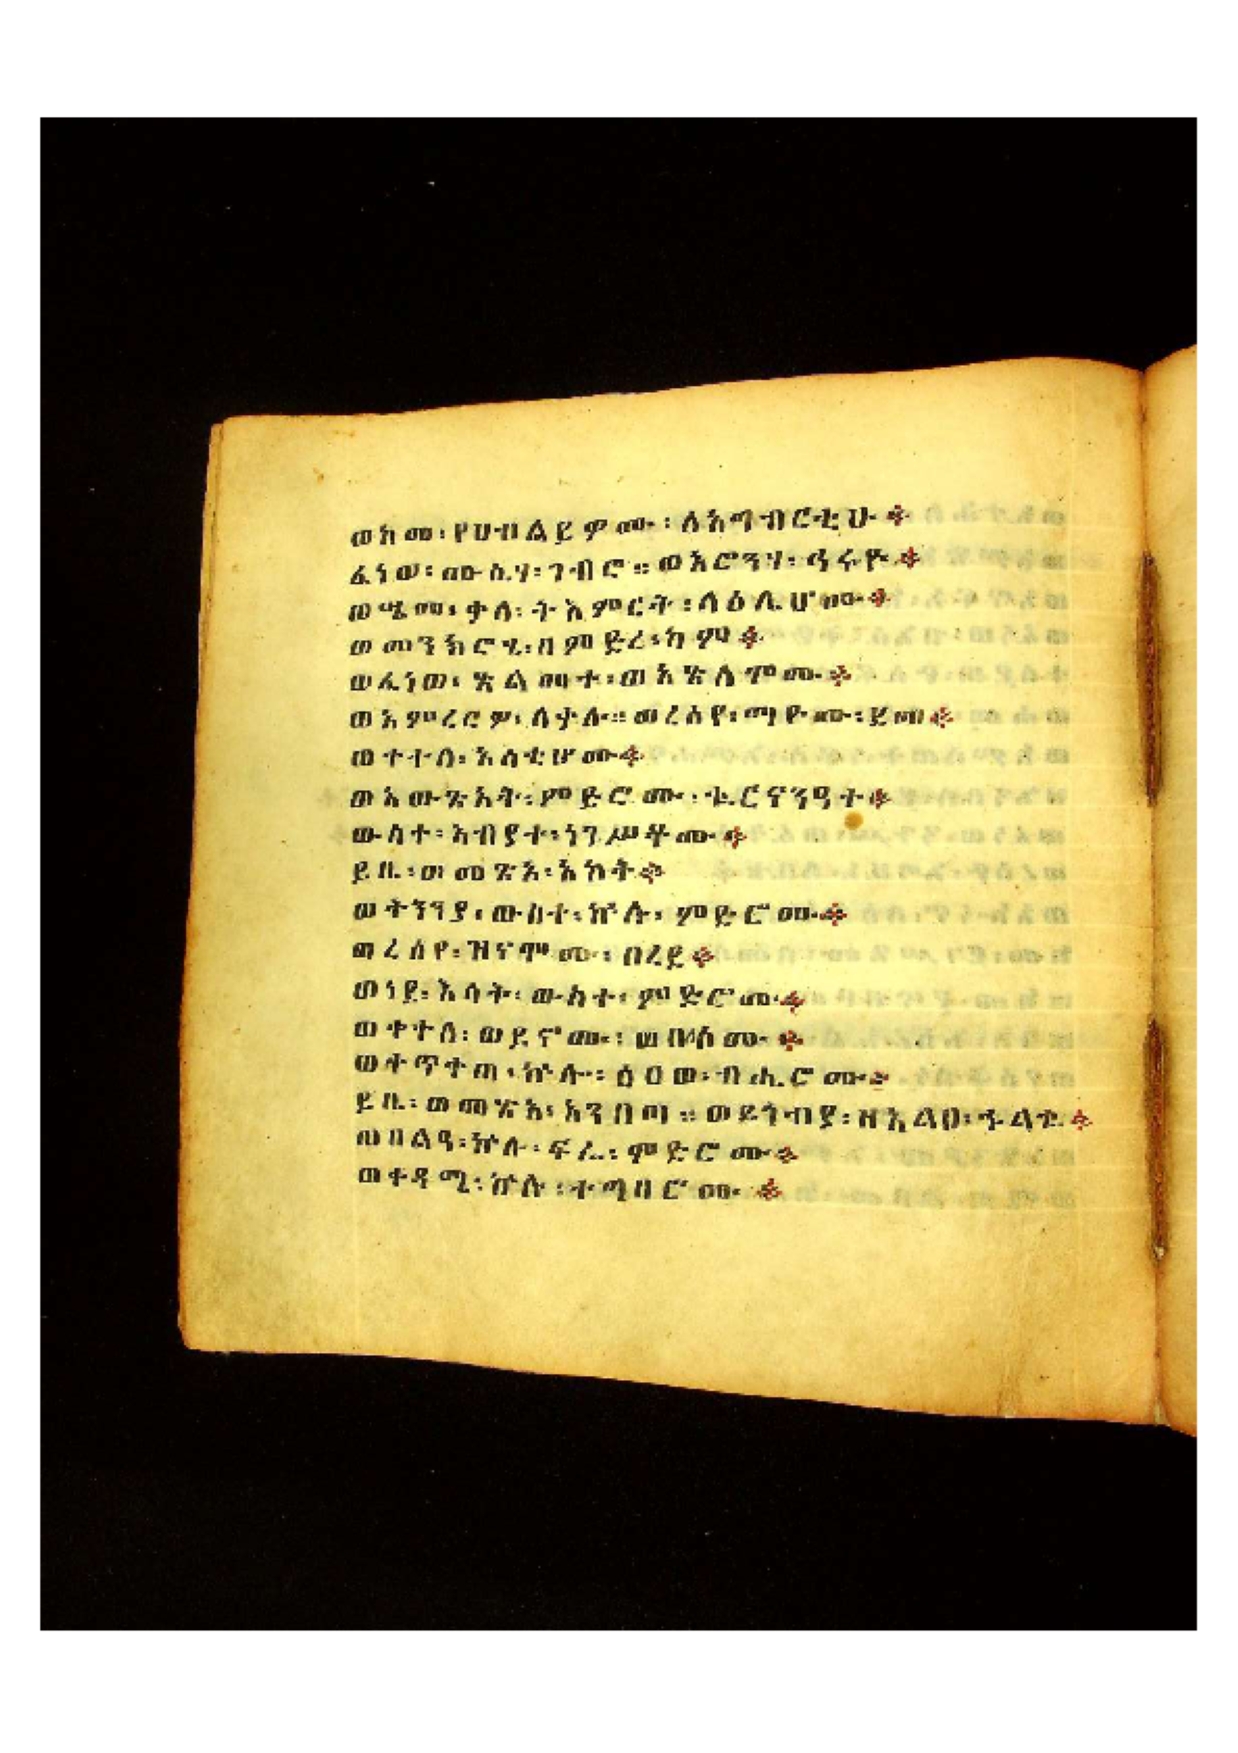 ወከመ፡ የሀብልይዎሙ፡ ለአግብርቲሁ፨
ፈነወ፡ ሙሴሃ፡ ገብሮ። ወአሮንሃ፡ ኅሩዮ፨
ወሤመ፡ ቃለ፡ ትእምርት፡ ላዕሌሆሙ፨
ወመንክሮሂ፡ በምድረ፡ ካም፨
ወፈነወ፡ ጽልመተ፡ ወአጽለሞሙ፨
ወአምረርዎ፡ ለቃሉ። ወረሰየ፡ ማዮሙ፡ ደመ፨
ወቀተለ፡ እሳቲሆሙ፨
ወአውጽአት፡ ምድሮሙ፡ ቈርናንዓተ፨
ውስተ፡ አብያተ፡ ነገሥቶሙ፨
ይቤ፡ ወመጽአ፡ አኮት፨
ወትንንያ፡ ውስተ፡ ኵሉ፡ ምድሮሙ፨
ወረሰየ፡ ዝናሞሙ፡ በረደ፨
ወነደ፡ እሳት፡ ውስተ፡ ምድሮሙ፨
ወቀተለ፡ ወይኖሙ፡ ወበለሶሙ፨
ወቀጥቀጠ፡ ኵሉ፡ ዕፀወ፡ ብሔሮሙ፨
ይቤ፡ ወመጽአ፡ አንበጣ። ወደጎብያ፡ ዘአልቦ፡ ኍልቈ፨
ወበልዓ፡ ኵሉ፡ ፍሬ፡ ምድሮሙ፨
ወቀዳሜ፡ ኵሉ፡ ተግባሮሙ፨